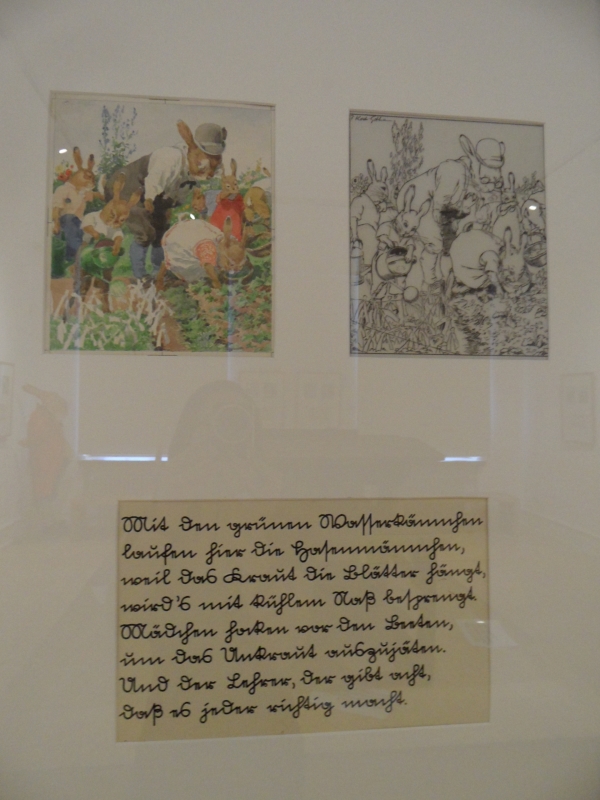 Mit den grünen Wasserkännchen
laufen hier die Hasenmännchen,
weil das Kraut die Blätter hängt,
wird's mit kühlem Naß besprengt.
Mädchen hocken vor den Beeten,
um das Unkraut auszujäten.
Und der Lehrer, der gibt acht,
daß es jeder richtig macht.